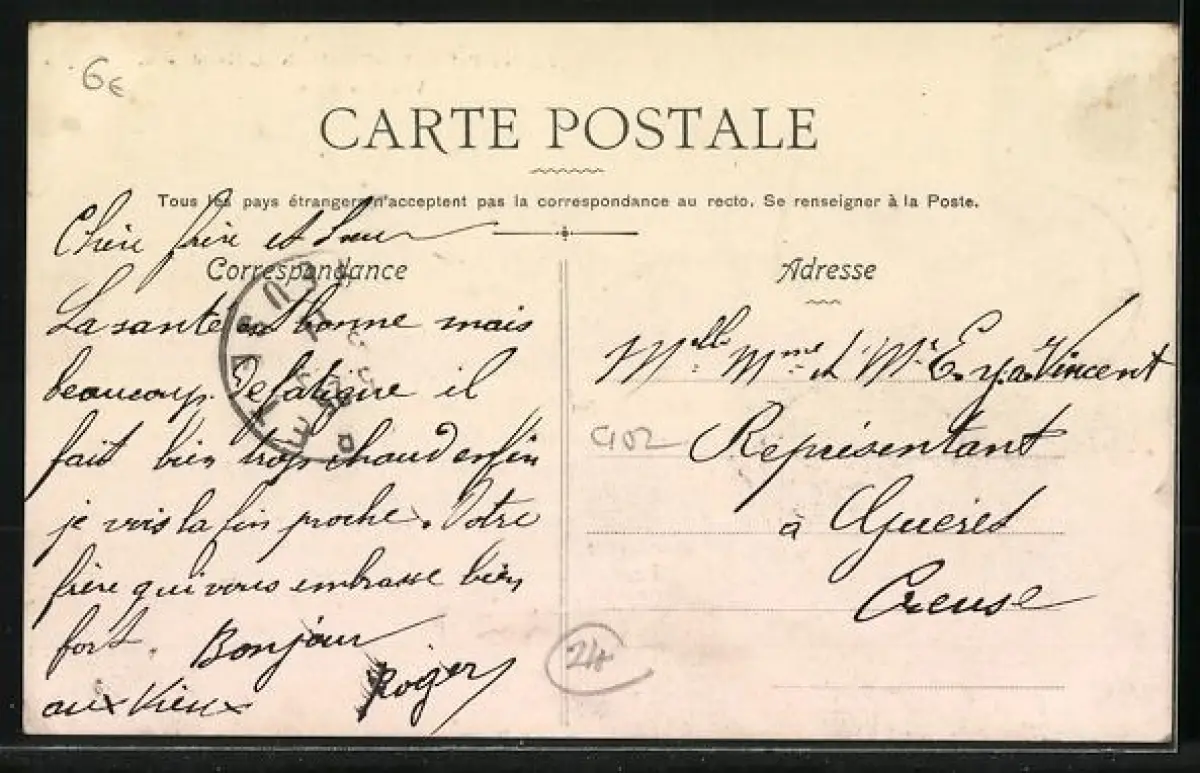 6€
CARTE POSTALE
Tous les pays étrangers n'acceptent pas la correspondance au recto. Se renseigner à la Poste.
Chère frère et Sœur
Correspondance
La santé est bonne mais
beaucoup de fatigue il
fait bien trop chaud enfin
je vois la fin proche. Votre
frère qui vous embrasse bien
fort. Bonjour
aux Vieux Roger
Adresse
Melle Mme et Mr Vincent
Représentant
à Guéret
Creuse
24